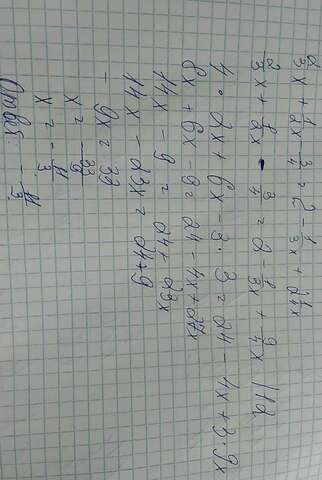 2/3x + 1/2x - 3/4 = 2 - 1/3x + 2 1/4x
2/3x + 1/2x - 3/4 = 2 - 1/3x + 9/4x |12
4 · 2x + 6x - 3 · 3 = 24 - 4x + 3 · 9x
8x + 6x - 9 = 24 - 4x + 27x
14x - 9 = 24 + 23x
14x - 23x = 24 + 9
- 9x = 33
x = - 33/9
x = - 11/3
Ответ: - 11/3